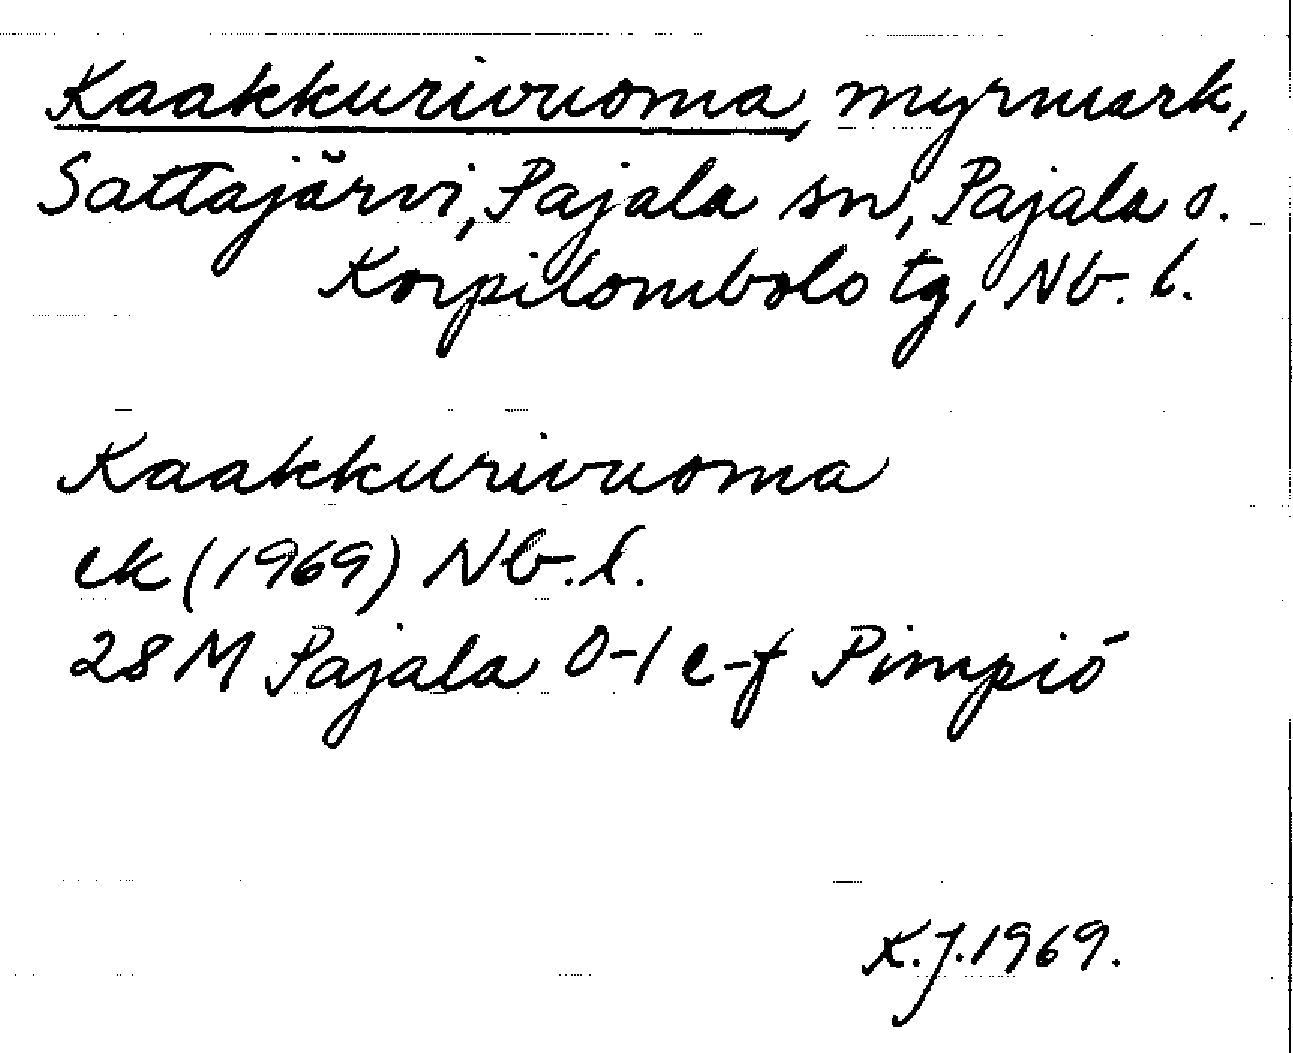 Kaakkurivuoma, myrmark,
Sattajärvi, Pajala sn, Pajala o.
Korpilombolo tg, Nb. l.
Kaakkurivuoma
ek (1969) Nb. l.
28 M Pajala 0-1 e-f Pimpiö
K.J. 1969.